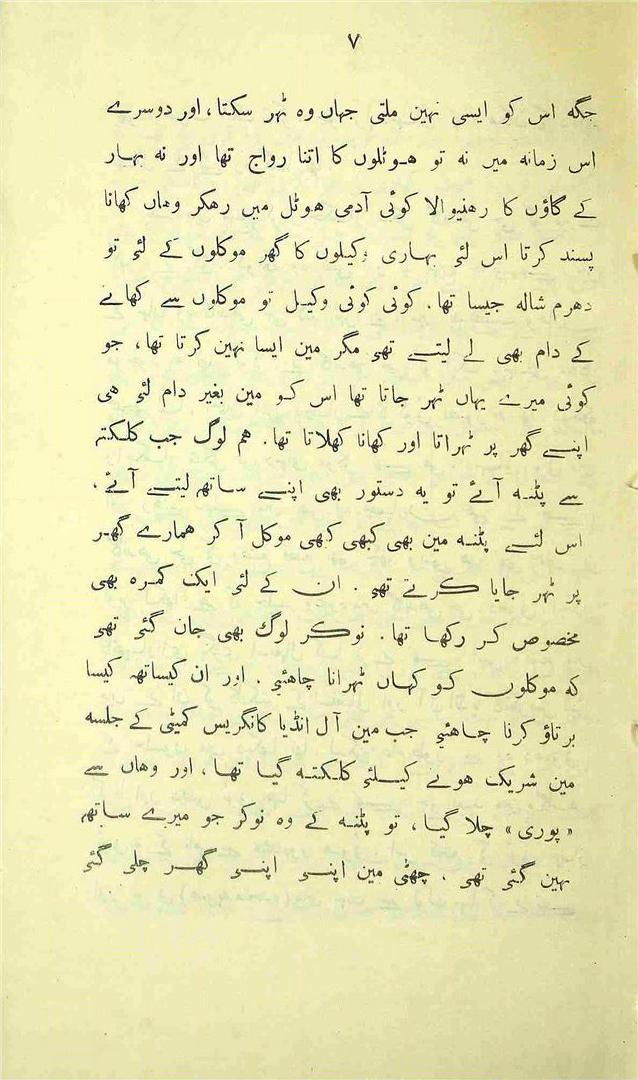 ۷
جگہ اس کو ایسی نہین ملتی جہاں وہ ٹہر سکتا، اور دوسرے
اس زمانہ میں نہ تو ھوٹلوں کا اتنا رواج تھا اور نہ بہار
کے گاؤں کا رھنیوالا کوئی آدمی ھوٹل میں رھکر وھاں کھانا
پسند کرتا اس لئے بہاری وکیلوں کا گھر موکلوں کے لئے تو
دھرم شالہ جیسا تھا. کوئی کوئی وکیل تو موکلوں سے کھانے
کے دام بھی لے لیتے تھے مگر مین ایسا نہین کرتا تھا، جو
کوئی میرے یہاں ٹہر جاتا تھا اس کو مین بغیر دام لئے ھی
اپنے گھر پر ٹہراتا اور کھانا کھلاتا تھا. ھم لوگ جب کلکتہ
سے پٹنہ آئے تو یہ دستور بھی اپنے ساتھ لیتے آئے.
اس لئے پٹنہ مین بھی کبھی کبھی موکل آ کر ھمارے گھر
پر ٹہر جایا کرتے تھے. ان کے لئے ایک کمرہ بھی
مخصوص کر رکھا تھا. نوکر لوگ بھی جان گئے تھے
کہ موکلوں کو کہاں ٹہرانا چاھئیے. اور ان کیساتھ کیسا
برتاؤ کرنا چاھئیے جب مین آل انڈیا کانگریس کمیٹی کے جلسہ
مین شریک ھونے کیلئے کلکتہ گیا تھا، اور وھاں سے
«پوری» چلا گیا، تو پٹنہ کے وہ نوکر جو میرے ساتھ
نہین گئے تھے. چھٹی مین اپنے اپنے گھر چلے گئے